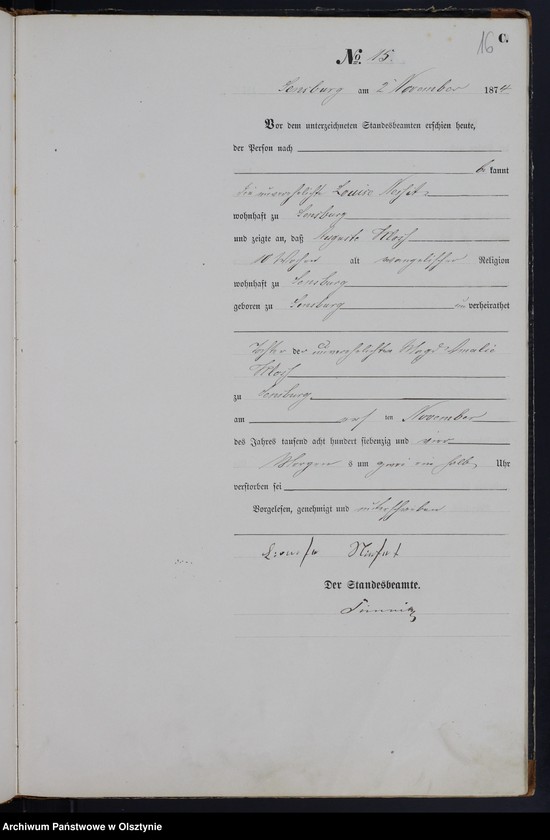 16 C.
No. 15.
Sensburg am 2 November 1874
Vor dem unterzeichneten Standesbeamten erschien heute,
der Person nach
bekannt
die unverehelichte Louise
wohnhaft zu Sensburg
und zeigte an, daß Auguste
10 Wochen alt evangelischer Religion
wohnhaft zu Sensburg
geboren zu Sensburg unverheirathet
Tochter der unverehelichten Magd Amalie
zu Sensburg
am ersten November
des Jahres tausend acht hundert siebenzig und vier
Morgens um zwei ein halb Uhr
verstorben sei
Vorgelesen, genehmigt und unterschrieben
Der Standesbeamte.
Archiwum Państwowe w Olsztynie